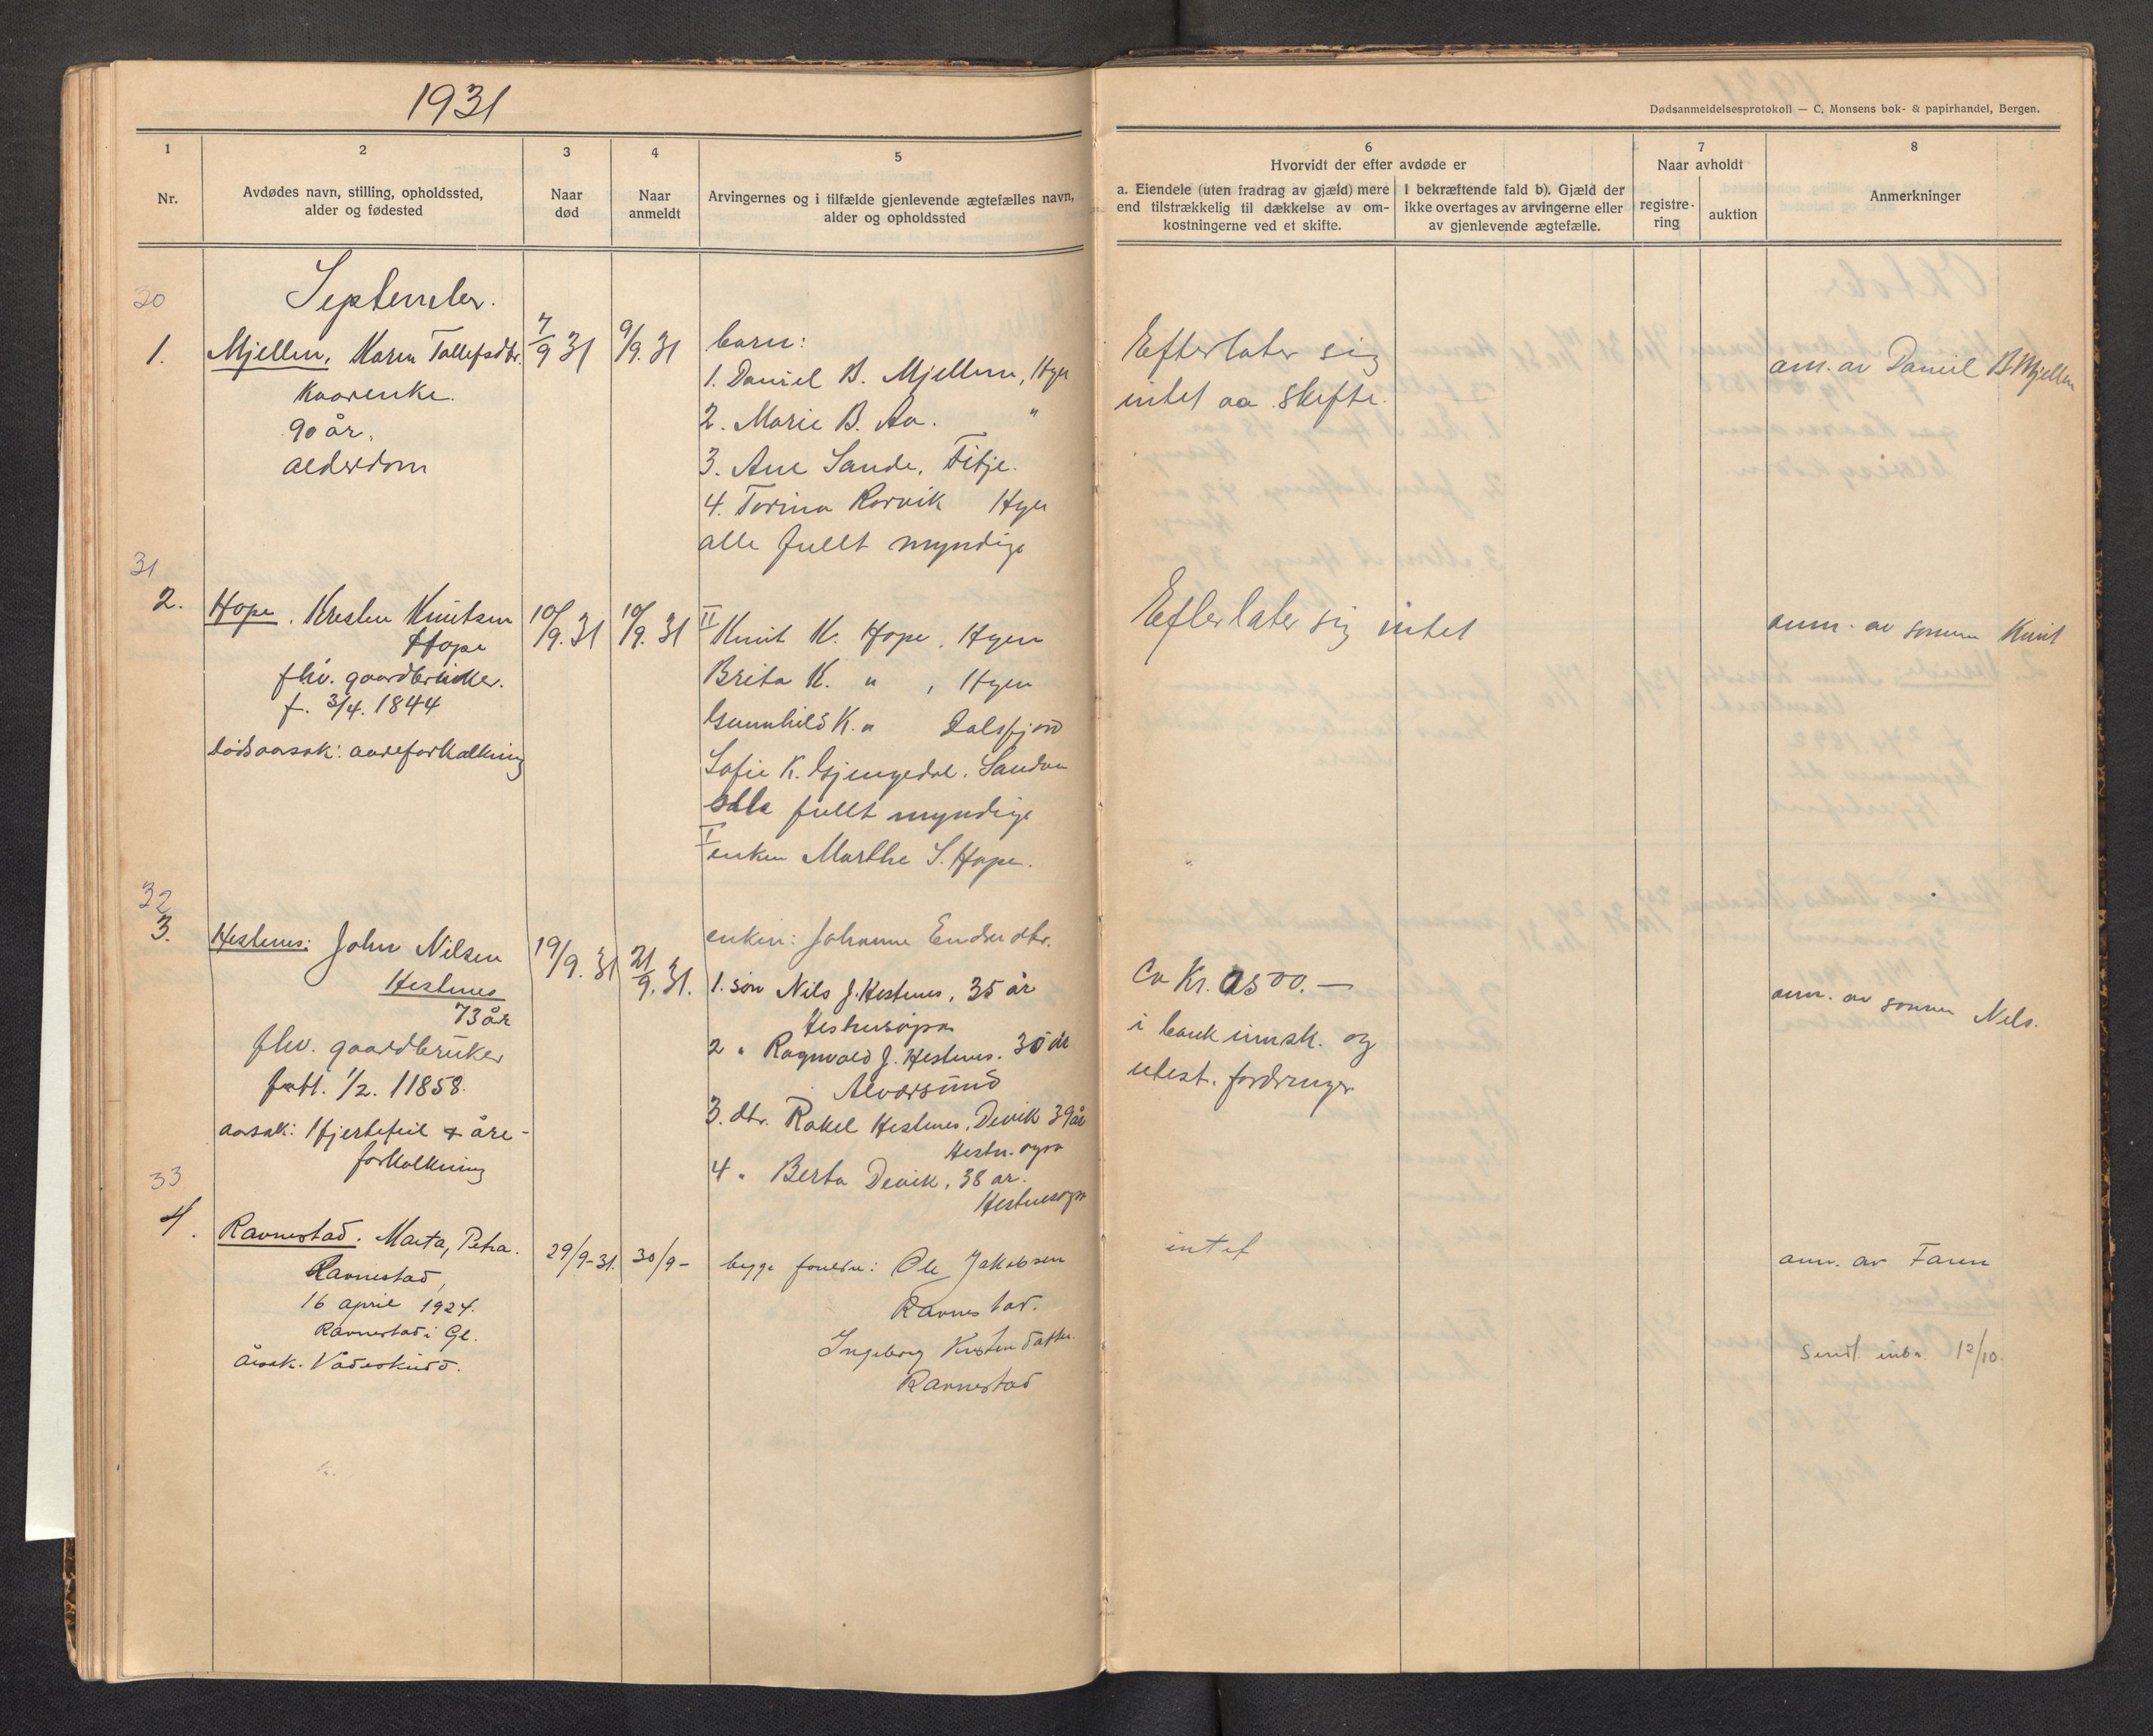 1931
Dødsanmeldelsesprotokoll — C. Monsens bok- & papirhandel, Bergen.
1
Nr.
2
Avdødes navn, stilling, opholdssted,
alder og fødested
3
Naar
død
4
Naar
anmeldt
5
Arvingernes og i tilfælde gjenlevende ægtefælles navn,
alder og opholdssted
6
Hvorvidt der efter avdøde er
a. Eiendele (uten fradrag av gjæld) mere
end tilstrækkelig til dækkelse av om-
kostningerne ved et skifte.
I bekræftende fald b). Gjæld der
ikke overtages av arvingerne eller
av gjenlevende ægtefælle.
7
Naar avholdt
registre-
ring
auktion
8
Anmerkninger
September.
30
1.
Mjellem, Karen Tollefsdtr.
Kaarenke.
90 år.
alderdom
7/9 31
9/9. 31
barn:
1. Daniel B. Mjellem, Hyen
2. Marie B. Aa. "
3. Ane Sande, Fitje.
4. Torina Rorvik Hyen
alle fullt myndige
Efterlater sig
intet aa skifte.
am. av Daniel B Mjellem
31
2.
Hope, Kresten Knutsen
Hope
fhv. gaardbruker.
f. 3/4. 1844
dødsaarsak: aareforkalkning
10/9. 31
10/9. 31
II Knut K. Hope, Hyen
Brita K. " , Hyen
Gunnhild K. " Dalsfjord
Sofie K. Gjengedal. Sandan
alle fullt myndige
I enken Marthe S. Hope.
Efterlater sig intet
anm. av sønnen Knut
32
3.
Hestenes: John Nilsen
Hestenes
73 år
fhv. gaardbruker
født. 1/2. 1858.
aarsak: Hjertefeil & åre-
forkalkning
19/9. 31
21/9. 31.
enken: Johanne Endredtr.
1. søn Nils J. Hestenes, 35 år
Hestnesøyra
2 " Ragnvald J. Hestenes. 30 år
Alversund
3. dtr. Rakel Hestenes, Devik 39 år
Hestn. øyra
4 " Berta Devik, 38 ar.
Hestnesøyr
Ca Kr. 2500.—
i bank innsk. og
utest. fordringer
anm. av sønnen Nils.
33
4.
Ravnestad. Marta, Petra.
Ravnestad,
16 april 1924.
Ravnestad i Gl.
Årsak. Vådeskudd.
29/9-31.
30/9-
begge foreldre: Ole Jakobsen
Ravnestad.
Ingeborg Kristendatter.
Ravnestad
intet
anm. av Faren
Sendt inb. 12/10.